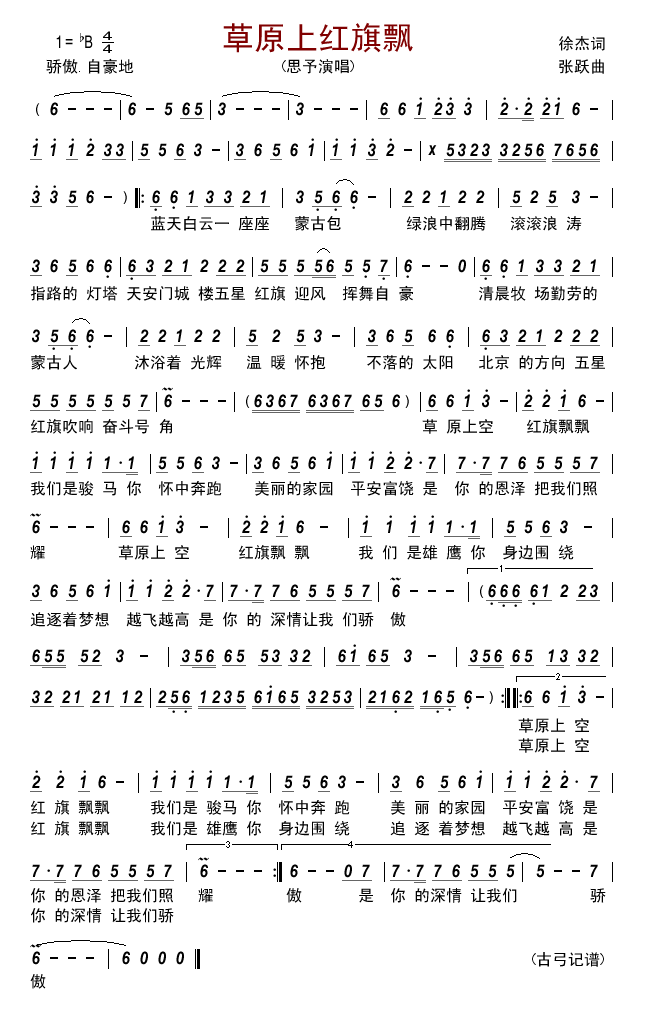 草原上红旗飘
1=♭B 4/4
徐杰词
骄傲.自豪地
(思予演唱)
张跃曲
( 6 - - - | 6 - 5 65 | 3 - - - | 3 - - - | 6 6 1 23 3 | 2·2 21 6 - |
1 1 1 2 33 | 5 5 6 3 - | 3 6 5 6 1 | 1 1 3 2 - | x 5323 3256 7656 |
3 3 5 6 - ) ‖: 6 6 1 3 3 2 1 | 3 5 6 6 - | 2 2 1 2 2 | 5 2 5 3 - |
蓝天白云一 座座 蒙古包 绿浪中翻腾 滚滚浪 涛
3 6 5 6 6 | 6 3 2 1 2 2 2 | 5 5 5 56 5 5 7 | 6 - - 0 | 6 6 1 3 3 2 1 |
指路的 灯塔 天安门城 楼五星 红旗 迎风 挥舞自 豪 清晨牧 场勤劳的
3 5 6 6 - | 2 2 1 2 2 | 5 2 5 3 - | 3 6 5 6 6 | 6 3 2 1 2 2 2 |
蒙古人 沐浴着 光辉 温 暖 怀抱 不落的 太阳 北京 的方向 五星
5 5 5 5 5 5 7 | 6 - - - | (6367 6367 65 6 ) | 6 6 1 3 - | 2 2 1 6 - |
红旗吹响 奋斗号 角 草 原上空 红旗飘飘
1 1 1 1 1·1 | 5 5 6 3 - | 3 6 5 6 1 | 1 1 2 2·7 | 7·7 7 6 5 5 5 7 |
我们是骏 马 你 怀中奔跑 美丽的家园 平安富饶 是 你 的恩泽 把我们照
6 - - - | 6 6 1 3 - | 2 2 1 6 - | 1 1 1 1 1·1 | 5 5 6 3 - |
耀 草原上 空 红旗飘 飘 我 们 是雄 鹰 你 身边围 绕
3 6 5 6 1 | 1 1 2 2·7 | 7·7 7 6 5 5 5 7 | 6 - - - | 1 (666 61 2 23 |
追逐着梦想 越飞越高 是 你 的 深情让我 们骄 傲
655 52 3 - | 356 65 53 32 | 61 65 3 - | 356 65 13 32 |
32 21 21 12 | 256 1235 6165 3253 | 2162 165 6 - ) :‖: 2 6 6 1 3 - |
草原上 空
草原上 空
2 2 1 6 - | 1 1 1 1 1·1 | 5 5 6 3 - | 3 6 5 6 1 | 1 1 2 2·7 |
红 旗 飘飘 我们是 骏马 你 怀中奔 跑 美 丽 的家园 平安富 饶是
红 旗 飘飘 我们是 雄鹰 你 身边围 绕 追 逐 着梦想 越飞越 高是
7·7 7 6 5 5 5 7 | 3 6 - - - :‖ 4 6 - - 0 7 | 7·7 7 6 5 5 5 | 5 - - 7 |
你 的恩泽 把我们照 耀 傲 是 你 的深情 让我们 骄
你 的深情 让我们骄
6 - - - | 6 0 0 0 ‖
(古弓记谱)
傲